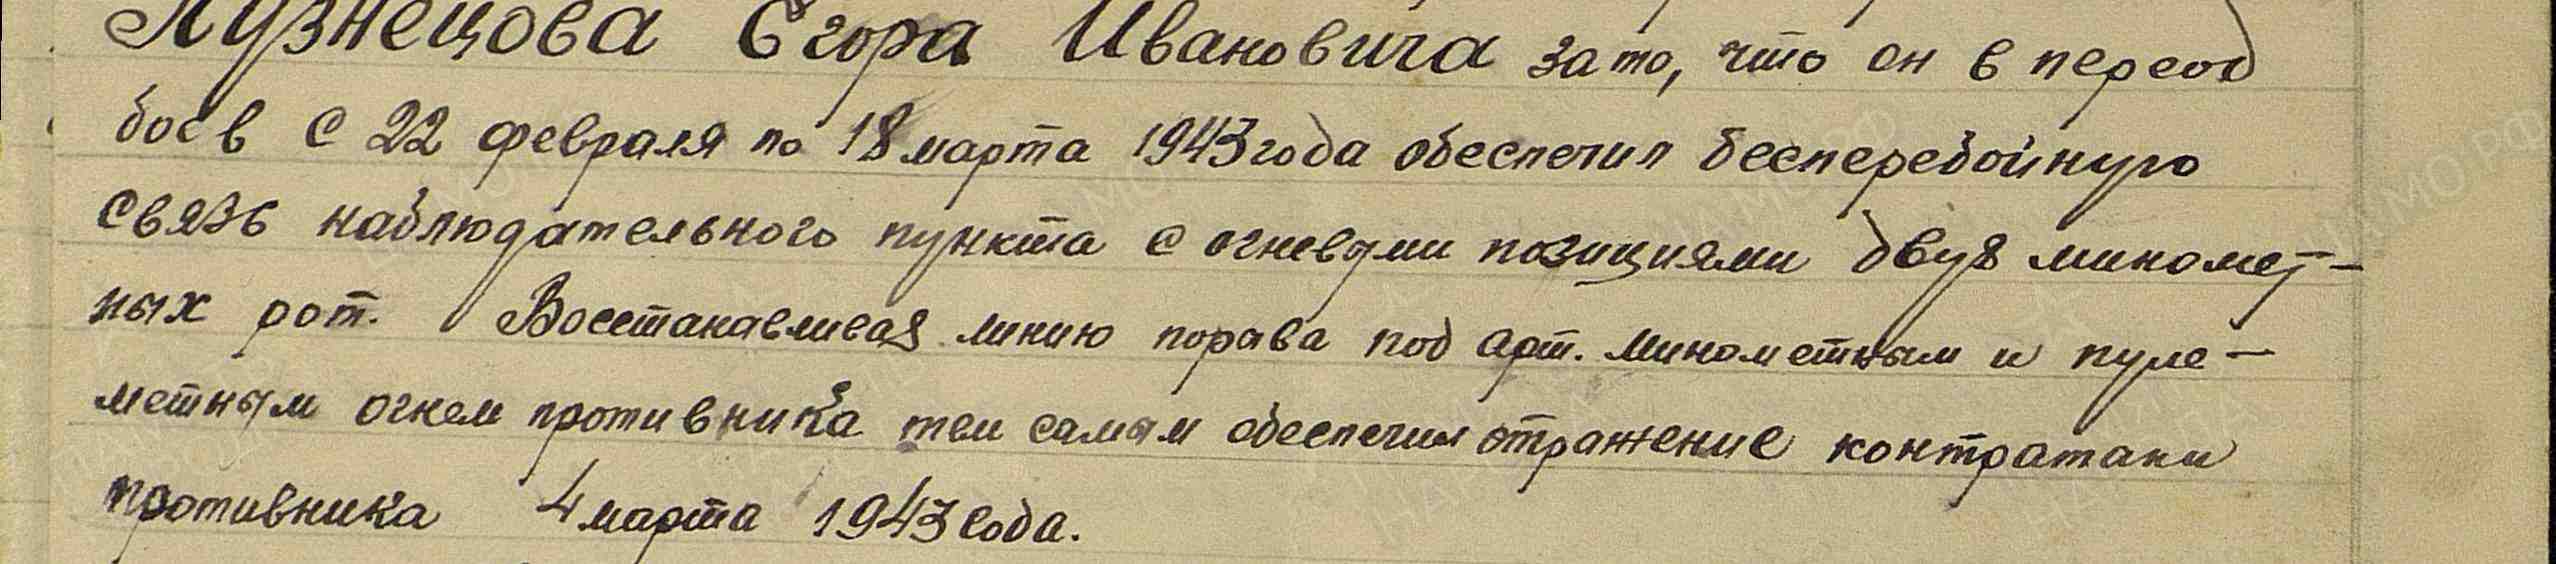 Кузнецова Егора Ивановича за то, что он в переод
боев с 22 февраля по 18 марта 1943 года обеспечил бесперебойную
связь наблюдательного пункта с огневыми позициями двух миномет-
ных рот. Восстанавливая линию порыва под арт. минометным и пуле-
метным огнем противника тем самым обеспечил отражение контратаки
противника 4 марта 1943 года.